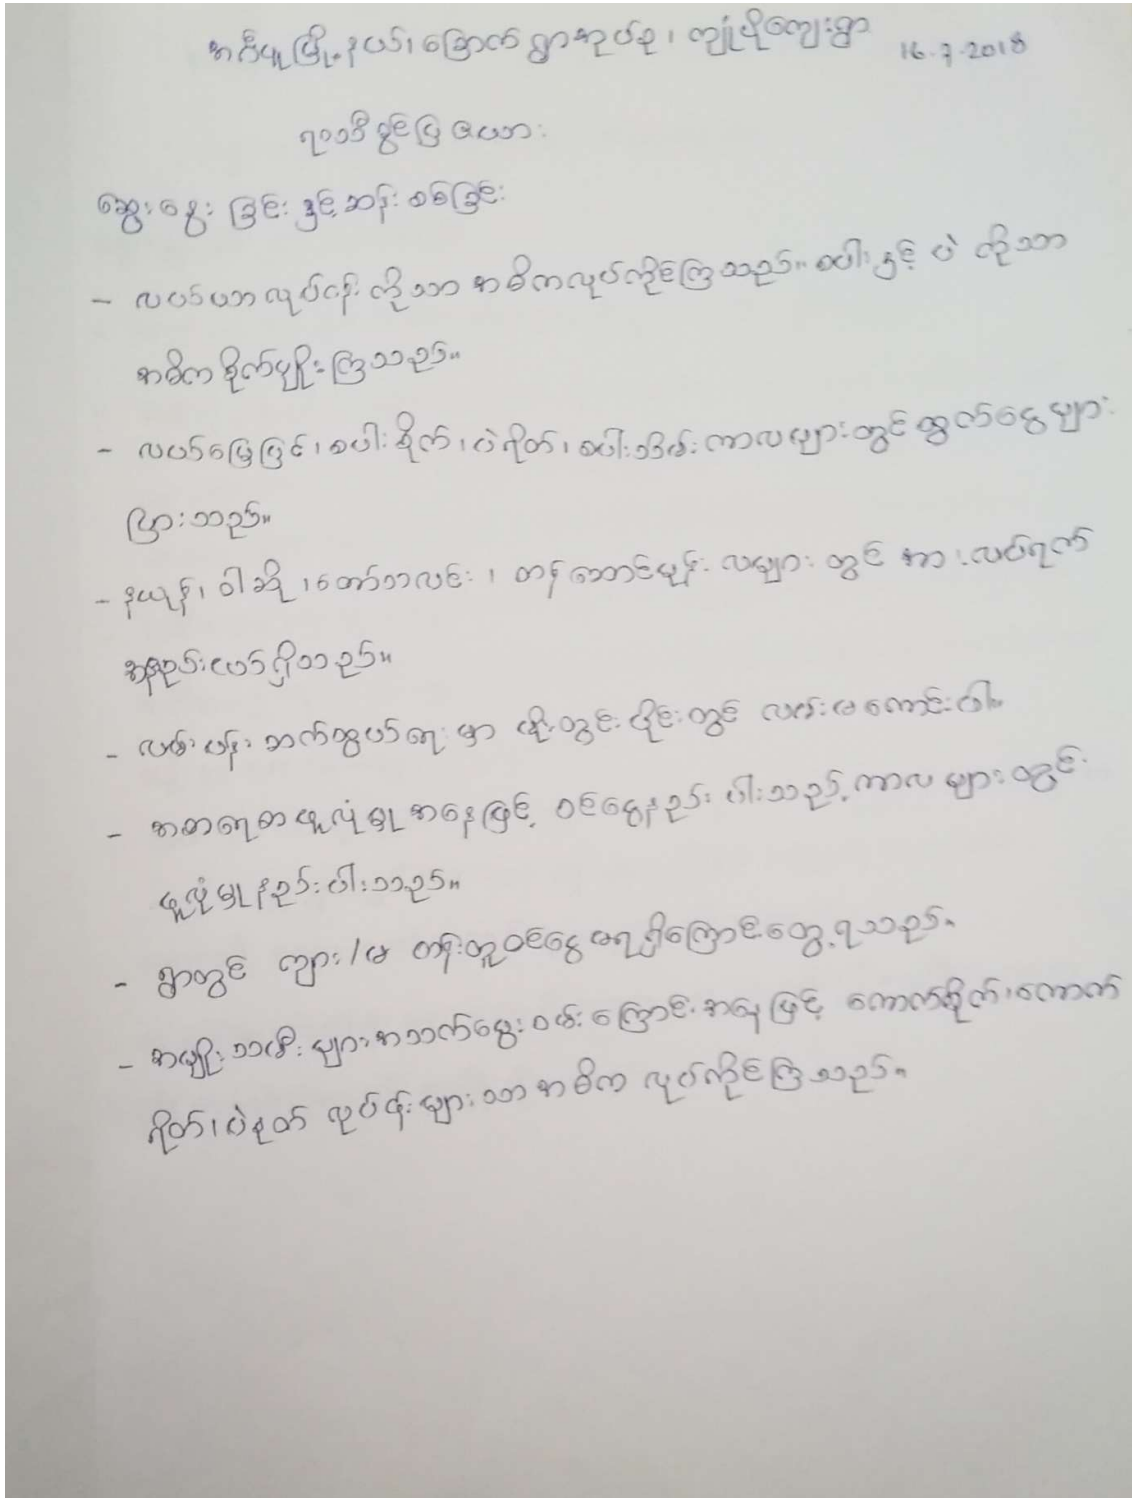 အင်္ဂပူမြို့နယ်၊ခြောက်ရွာအုပ်စု၊ ကျုံပိုကျေးရွာ 16.7.2018
ရာသီခွင်ပြဇယား
ဆွေးနွေးခြင်းနှင့်ဆန်းစစ်ခြင်း
- လယ်ယာလုပ်ငန်းကိုသာ အဓိကလုပ်ကိုင်ကြသည်။ စပါးနှင့် ပဲ ကိုသာ
အဓိကစိုက်ပျိုးကြသည်။
- လယ်မြေပြင်၊စပါးစိုက်၊ပဲရိတ်၊စပါးသိမ်းကာလများတွင်ထွက်ငွေများ
ပြားသည်။
- နယုန်၊ဝါဆို၊တော်သလင်း၊တန်ဆောင်မုန်းလများတွင် အားလပ်ရက်
အနည်းငယ်ရှိသည်။
- လမ်းပန်းဆက်သွယ်ရေးမှာ မိုးတွင်းပိုင်းတွင် လမ်းမကောင်းပါ။
- အစာရေစာဖူလုံမှုအနေဖြင့် ဝင်ငွေနည်းပါးသည့်ကာလများတွင်
ဖူလုံမှုနည်းပါးသည်။
- ရွာတွင် ကျား/မ တန်းတူဝင်ငွေမရရှိကြောင်းတွေ့ရသည်။
- အမျိုးသမီးများအသက်မွေးဝမ်းကြောင်းအနေဖြင့် ကောက်စိုက်၊ကောက်
ရိတ်၊ပဲနုတ် လုပ်ငန်းများသာအဓိက လုပ်ကိုင်ကြသည်။